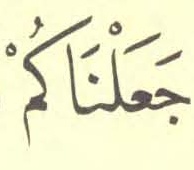 جَعَلْنَاكُمْ